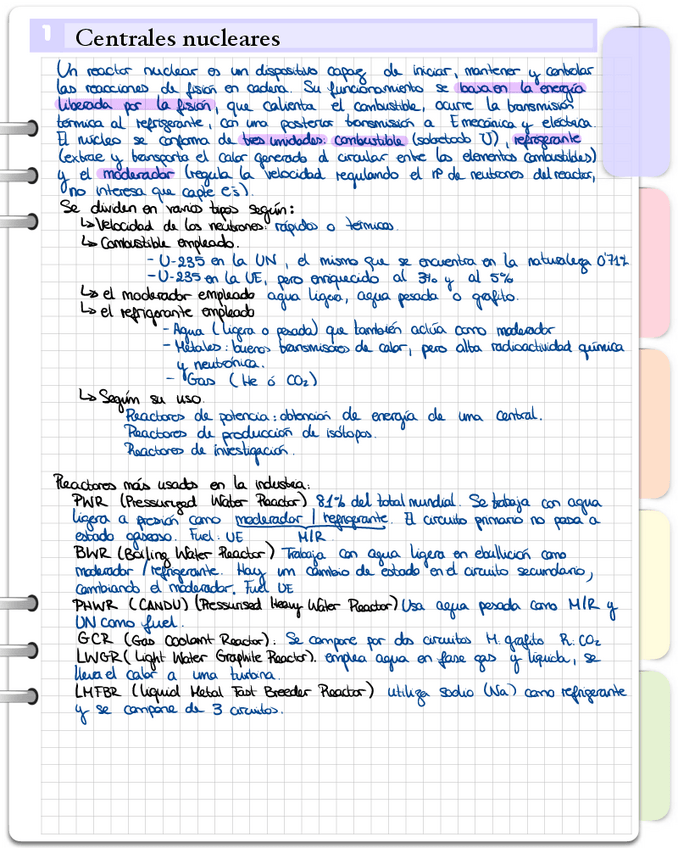 1 Centrales nucleares
Un reactor nuclear es un dispositivo capaz de iniciar, mantener y controlar
las reacciones de fisión en cadena. Su funcionamiento se basa en la energía
liberada por la fisión, que calienta el combustible, ocurre la transmisión
térmica al refrigerante, con una posterior transmisión a E mecánica y eléctrica.
El núcleo se conforma de tres unidades: combustible (sobretodo U), refrigerante
(extrae y transporta el calor generado al circular entre los elementos combustibles)
y el moderador (regula la velocidad regulando el nº de neutrones del reactor,
no interesa que capte es).
Se dividen en varios tipos según:
↳ Velocidad de los neutrones: rápidos o térmicos.
↳ Combustible empleado.
- U-235 en la UN, el mismo que se encuentra en la naturaleza 0'71%
- U-235 en la UE, pero enriquecido al 3% y al 5%
↳ el moderador empleado agua ligera, agua pesada o grafito.
↳ el refrigerante empleado
- Agua (ligera o pesada) que también actúa como moderador
- Metales: buenos transmisores de calor, pero alta radioactividad química
y neutrónica.
- Gas (He ó CO2)
↳ Según su uso.
Reactores de potencia: obtención de energía de una central.
Reactores de producción de isótopos.
Reactores de investigación.
Reactores más usados en la industria:
PWR (Pressurized Water Reactor) 81% del total mundial. Se trabaja con agua
ligera a presión como moderador / refrigerante. El circuito primario no pasa a
estado gaseoso. Fuel: UE M/R
BWR (Boiling Water Reactor) Trabaja con agua ligera en ebullición como
moderador / refrigerante. Hay un cambio de estado en el circuito secundario,
cambiando el moderador. Fuel UE
PHWR (CANDU) (Pressurised Heavy Water Reactor) Usa agua pesada como M/R y
UN como fuel.
GCR (Gas Coolant Reactor). Se compone por dos circuitos M. grafito R. CO2
LWGR (Light Water Graphite Reactor). emplea agua en fase gas y líquida, se
lleva el calor a una turbina.
LMFBR (Liquid Metal Fast Breeder Reactor) utiliza sodio (Na) como refrigerante
y se compone de 3 circuitos.